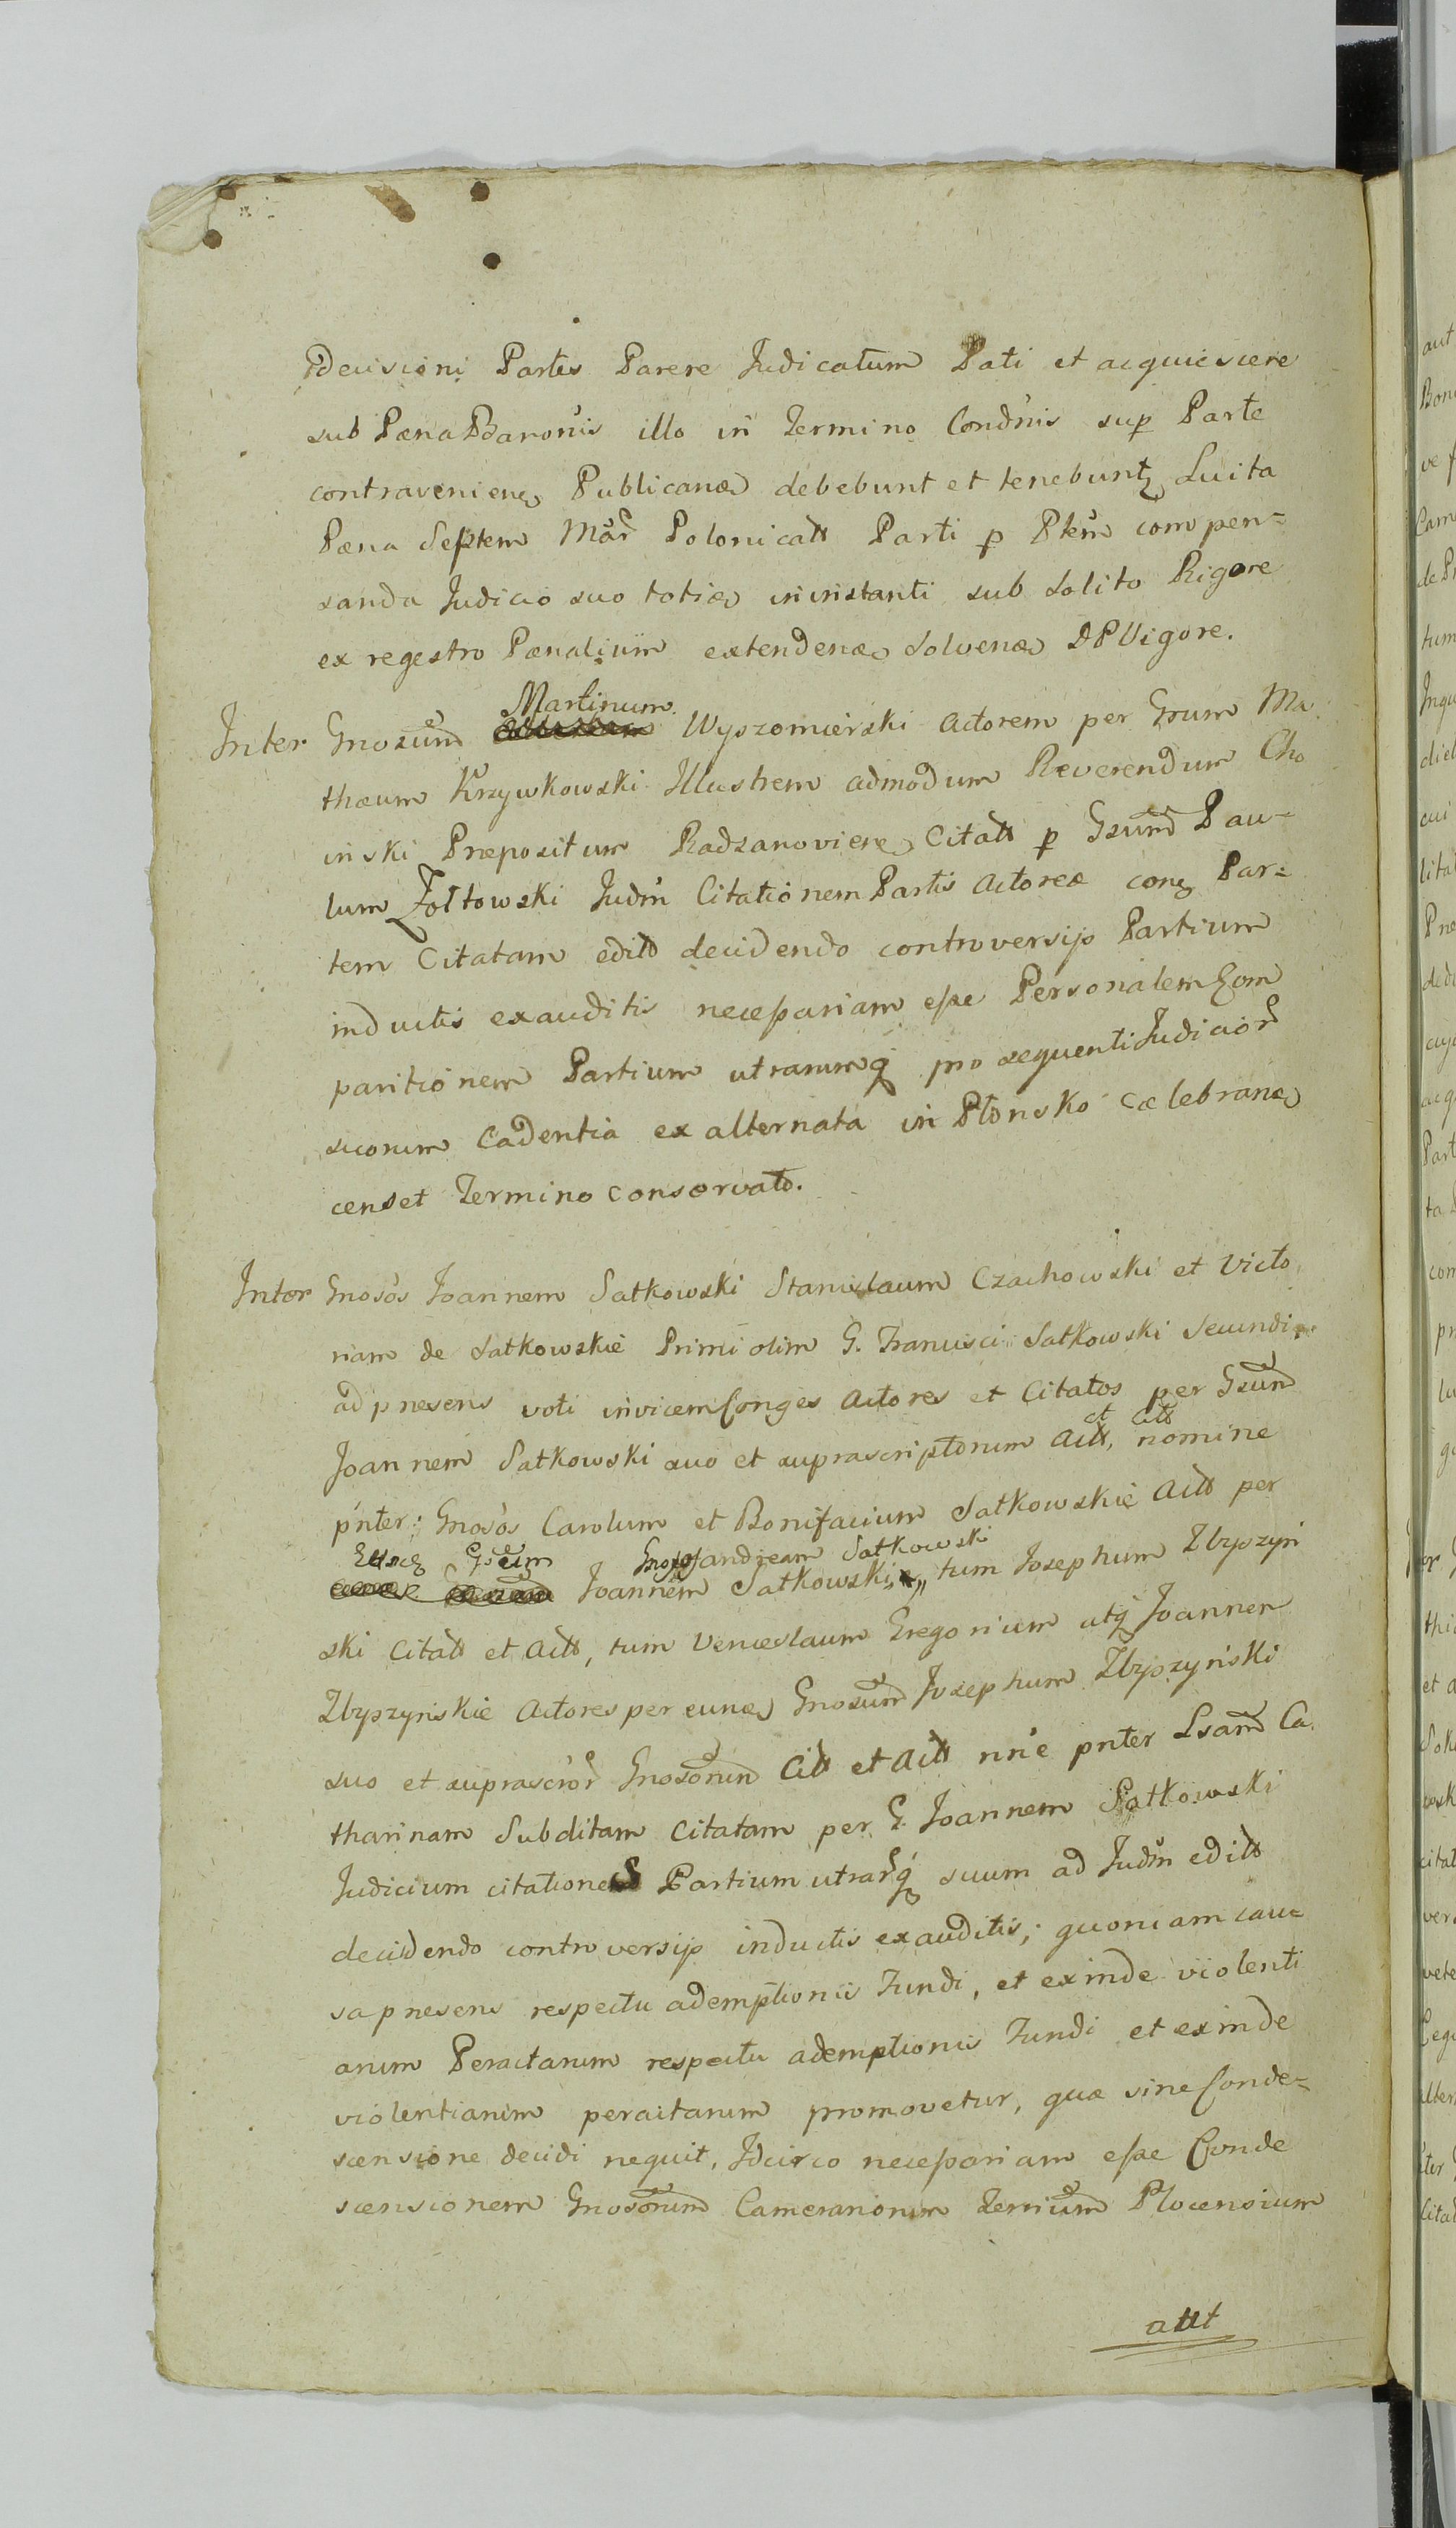 Decisioni Partes Parere Judicatum Pati et acquiescere
sub Pæna Baronis illo in Termino Condnis sup Parte
contravenien Publicanæ debebunt et tenebunt Luita
Pæna Septem Mar Polonicall Parti p Pltm compen=
sanda Judicio suo toties in instanti sub solito Rigore
ex regestro Pænalium extendenæ solvenæ DP Vigore.
Martinum
Inter Gnosum Wyszomierski Actorem per Gsum Ma
thæum Krzywkowski Illustrem admodum Reverendum Cho
inski Præpositum Radzanoviene Citatt p Gsum Pau-
lum Żołtowski Judm Citationem Partis Actoreæ con Par=
tem Citatam editt decidendo controversijs Partium
inductis exauditis necessariam esse Personalem Com
paritionem Partium utrarumq pro sequenti Judicior
suorum Cadentia ex alternata in Płonsko cælebranæ
censet Termino conservato.
Inter Gnosos Joannem Satkowski Stanislaum Czachowski et Victo
riam de Satkowskie Primi olim G. Francisci Satkowski Secundi
ad præsens voti invicem Conges Actores et Citatos per Gsum
et Citt
Joannem Satkowski suo et suprascriptorum Actt, nomine
pnter: Gnosos Carolum et Bonifacium Satkowskie Actt per
Gnosos Andream Satkowski
Joannem Satkowski, tum Josephum Zbyszyń
ski Citatt et Actt, tum Venceslaum Gregorium atq Joannem
Zbyszyńskie Actores per eunæ Gnosum Josephum Zbyszyński
suo et suprascror Gnosorum Citt et Actt nne pnter Lsam Ca
tharinam Subditam Citatam per G. Joannem Satkowski
Judicium citationes Partium utrarq suum ad Judm editt
decidendo controversijs inductis exauditis; quoniam cau=
sa præsens respectu ademptionis Fundi, et exinde violenti
arum Peractarum respectu ademptionis Fundi et exinde
violentiarum peractarum promovetur, quæ sine Conde=
scensione decidi nequit, Idcirco necessariam esse Conde
scensionem Gnosorum Camerariorum Terrium Plocensium
aut